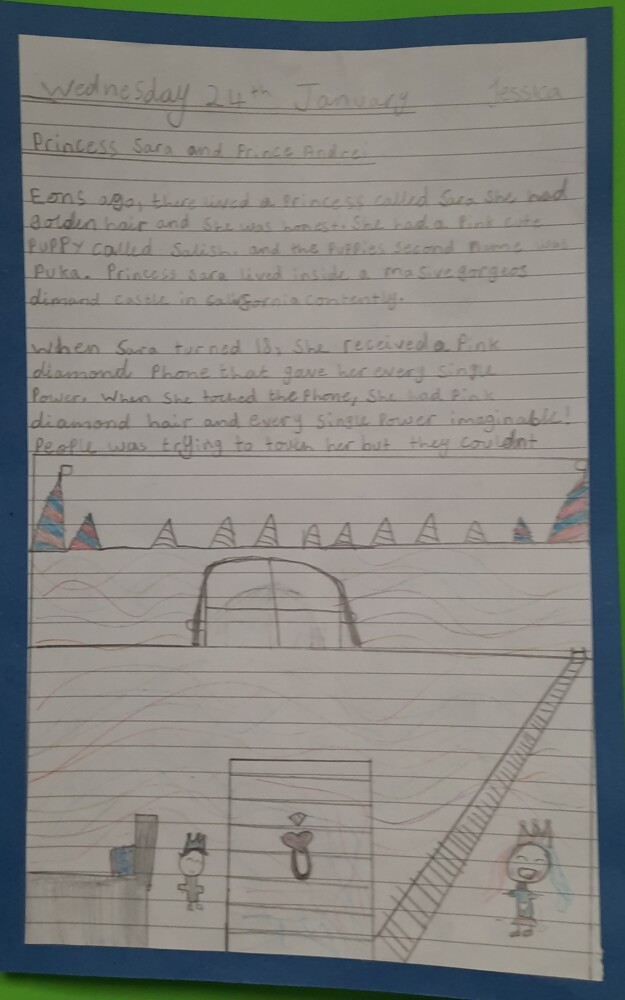 Wednesday 24th January Jessica
Princess Sara and Prince Andrei
Eons ago, there lived a Princess called Sara she had
golden hair and she was honest. She had a Pink cute
PUPPY called Salish. and the Puppies second name was
Puka. Princess sara lived inside a masive gorgeos
dimand castle in california contently.
When Sara turned 13, She received a Pink
diamond Phone that gave her every single
Power. When she toched the Phone, She had Pink
diamond hair and every single Power imaginable!
People was trying to touch her but they couldnt